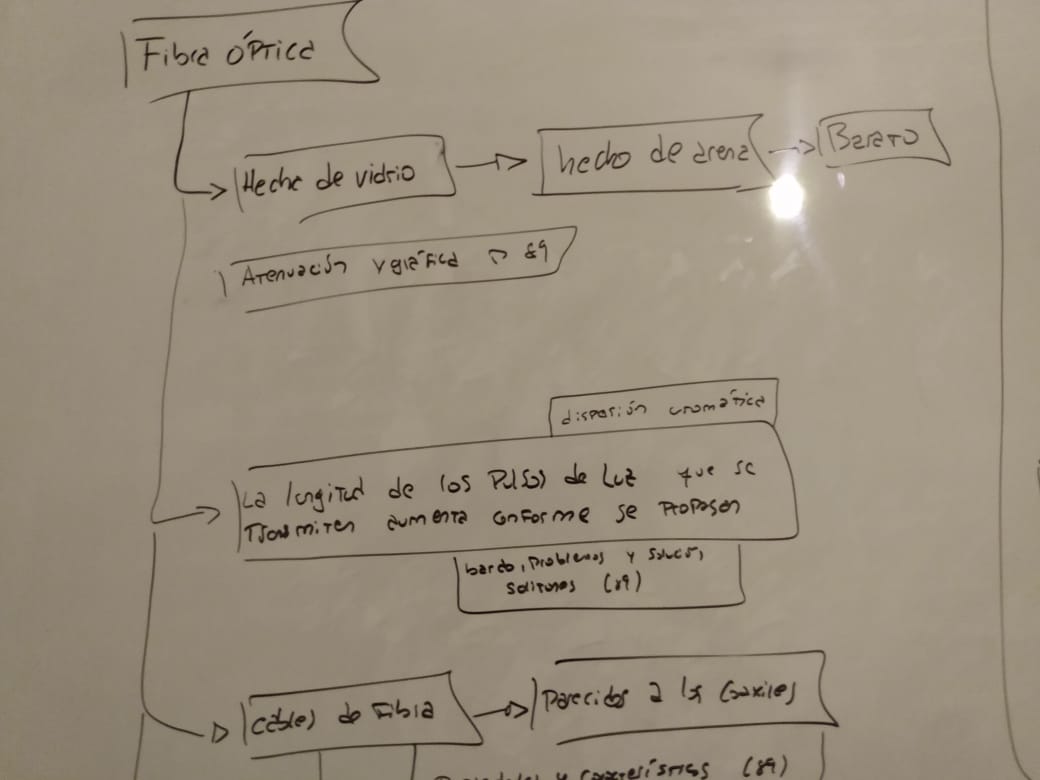 Fibra óptica
Hecha de vidrio
hecho de arena
Barato
Atenuación y gráfica 89
dispersión cromática
La longitud de los Pulsos de Luz que se
Transmiten aumenta conforme se propagan
bardo, Problemas y soluc,
solitones (89)
cables de Fibra
Parecidos a los coaxiles
y características (89)